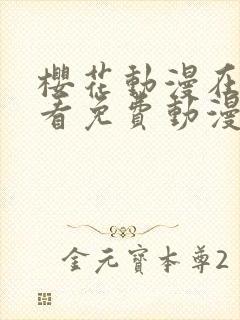 櫻花動漫在
看免費動漫
金元寶本尊2